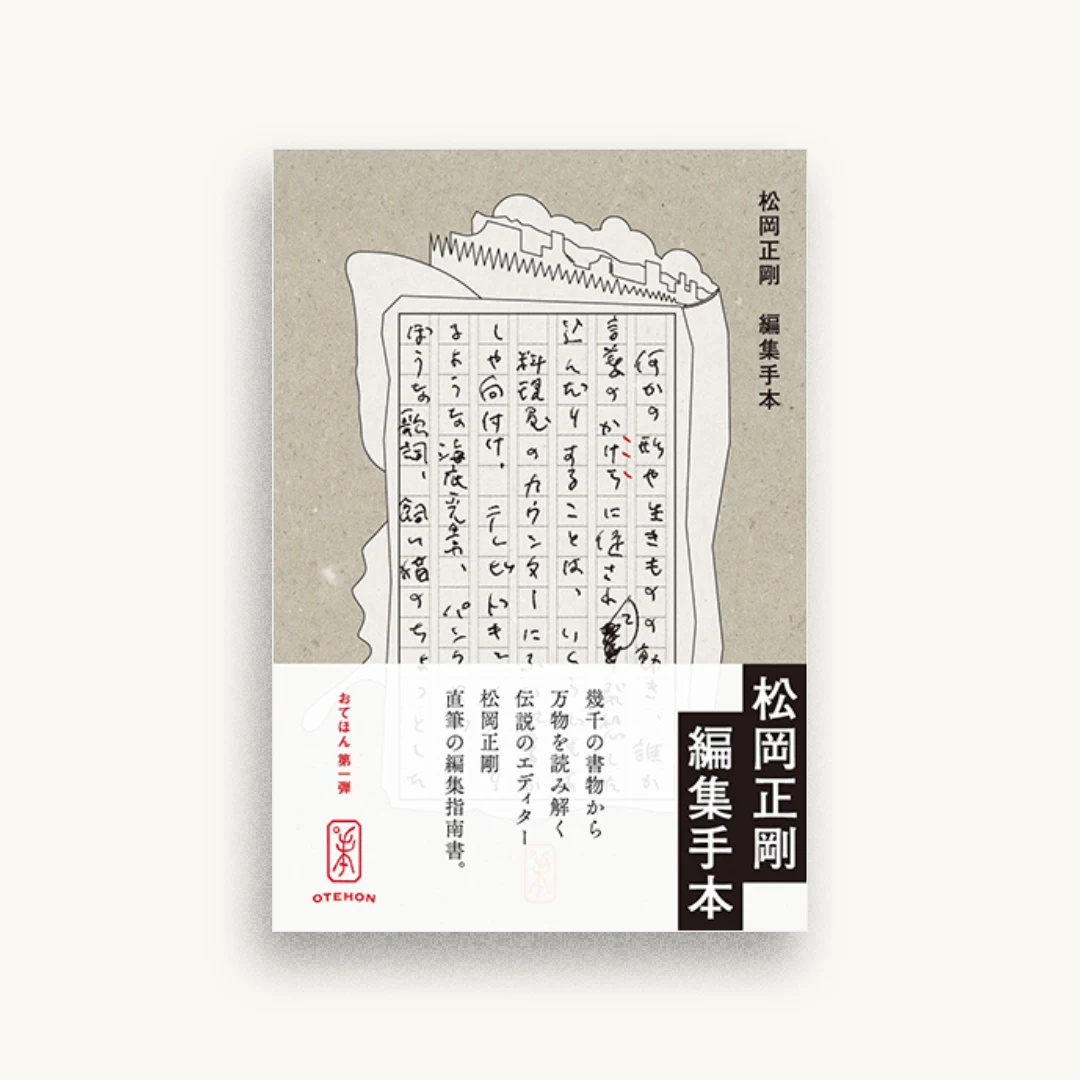 松岡正剛 編集手本
何かの形や生きものの動き、誰か
言葉のかけちに促され
込んだりすることは、いくら
料理屋のカウンターに
しや向付け、テレビドキ
るような海底光景、パンク
ぼうな歌詞、飼い猫のちょっとした
松岡正剛
編集手本
幾千の書物から
万物を読み解く
伝説のエディター
松岡正剛
直筆の編集指南書。
おてほん 第一弾
本
OTEHON